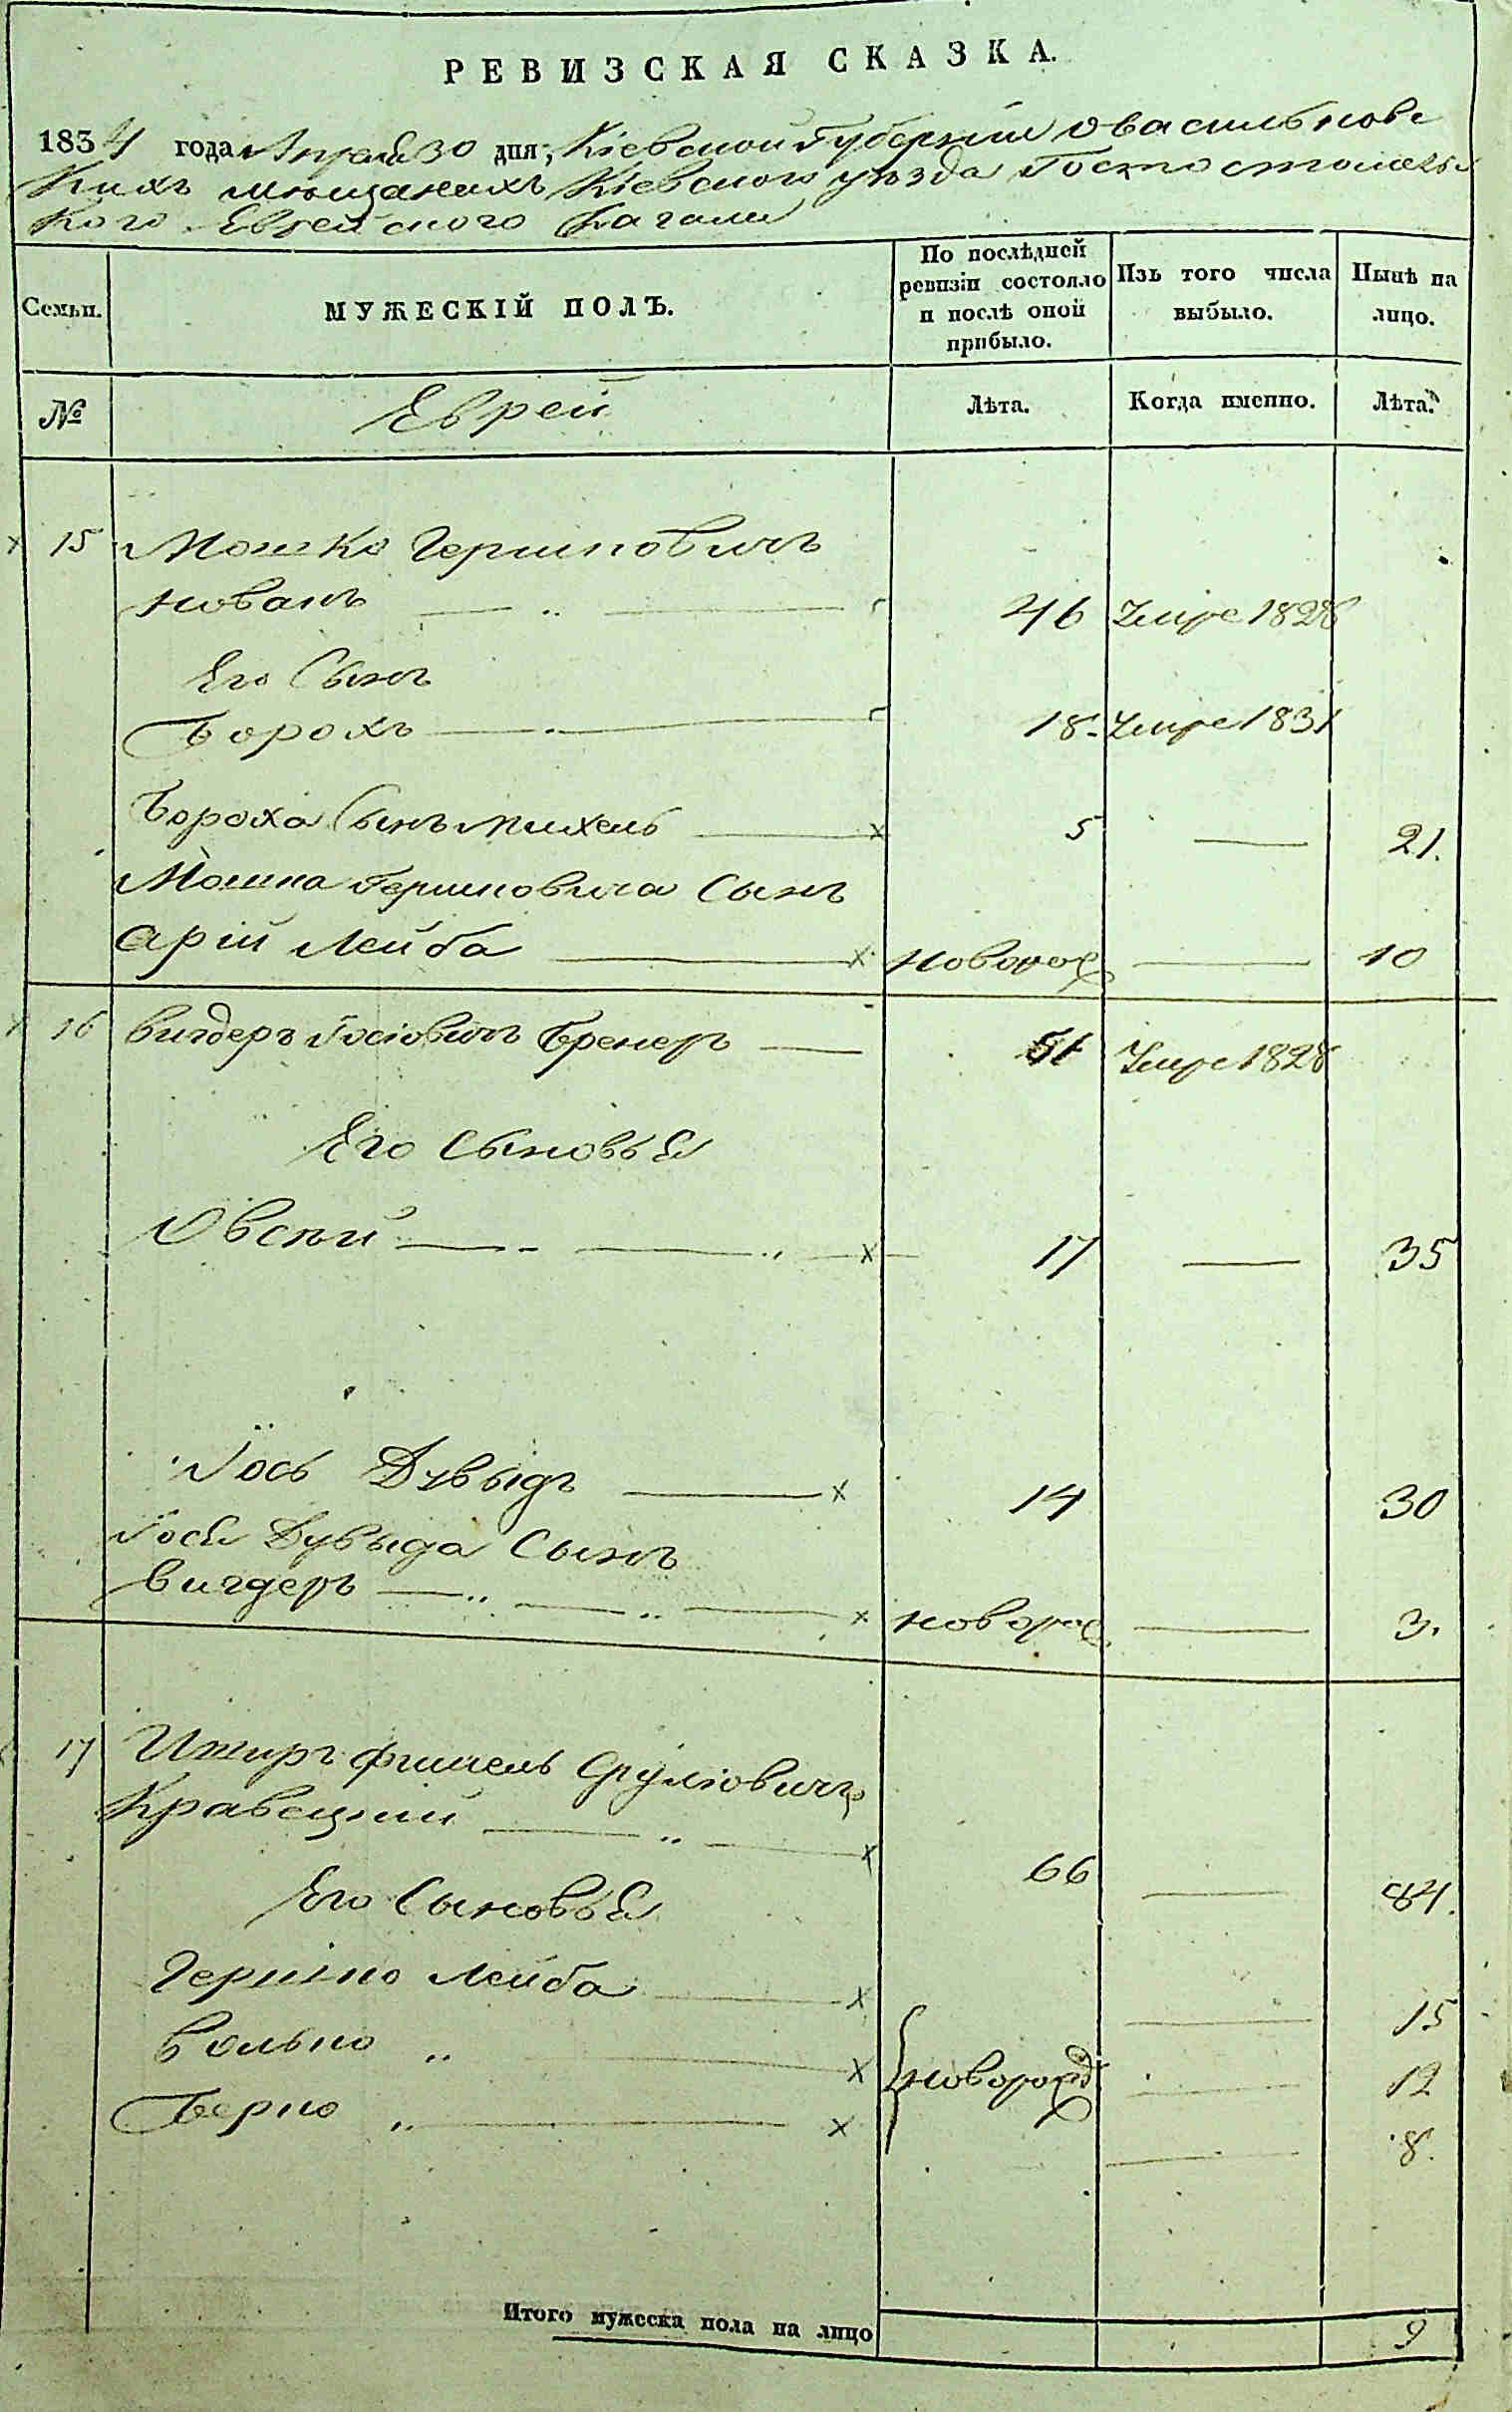 РЕВИЗСКАЯ СКАЗКА.
1834 года Апреля 30 дня, Кіевской Губерніи о васильков
скихъ мещанахъ Кіевского уезда Гостомельс
кого Еврейского Кагала
Семьи.
МУЖЕСКІЙ ПОЛЪ.
По послѣдней ревизіи состояло и послѣ оной прибыло.
Изъ того числа выбыло.
Нынѣ на лицо.
№
Еврей
Лѣта.
Когда именно.
Лѣта.
15 Мошко Гершковичъ
Новакъ 46 Умре 1828
Его Сынъ
Борохъ 18 Умре 1831
Бороха Сынъ Михель 5 — 21.
Мошка Гершковича Сынъ
Арій Лейба новорож — 10
16 Вигдеръ Іосіовичъ Бренеръ 51 Умре 1828
Его Сыновья
Овсѣй 17 — 35
Іось Дувыдъ 14 30
Іося Дувыда Сынъ
Вигдеръ новорож — 3.
17 Фишель Срулiовичъ
Кравецкий 66 — 84.
Его Сыновья
Гершко Лейба — 15
Волько новорожд — 12
Берко — 8.
Итого мужеска пола на лицо 9